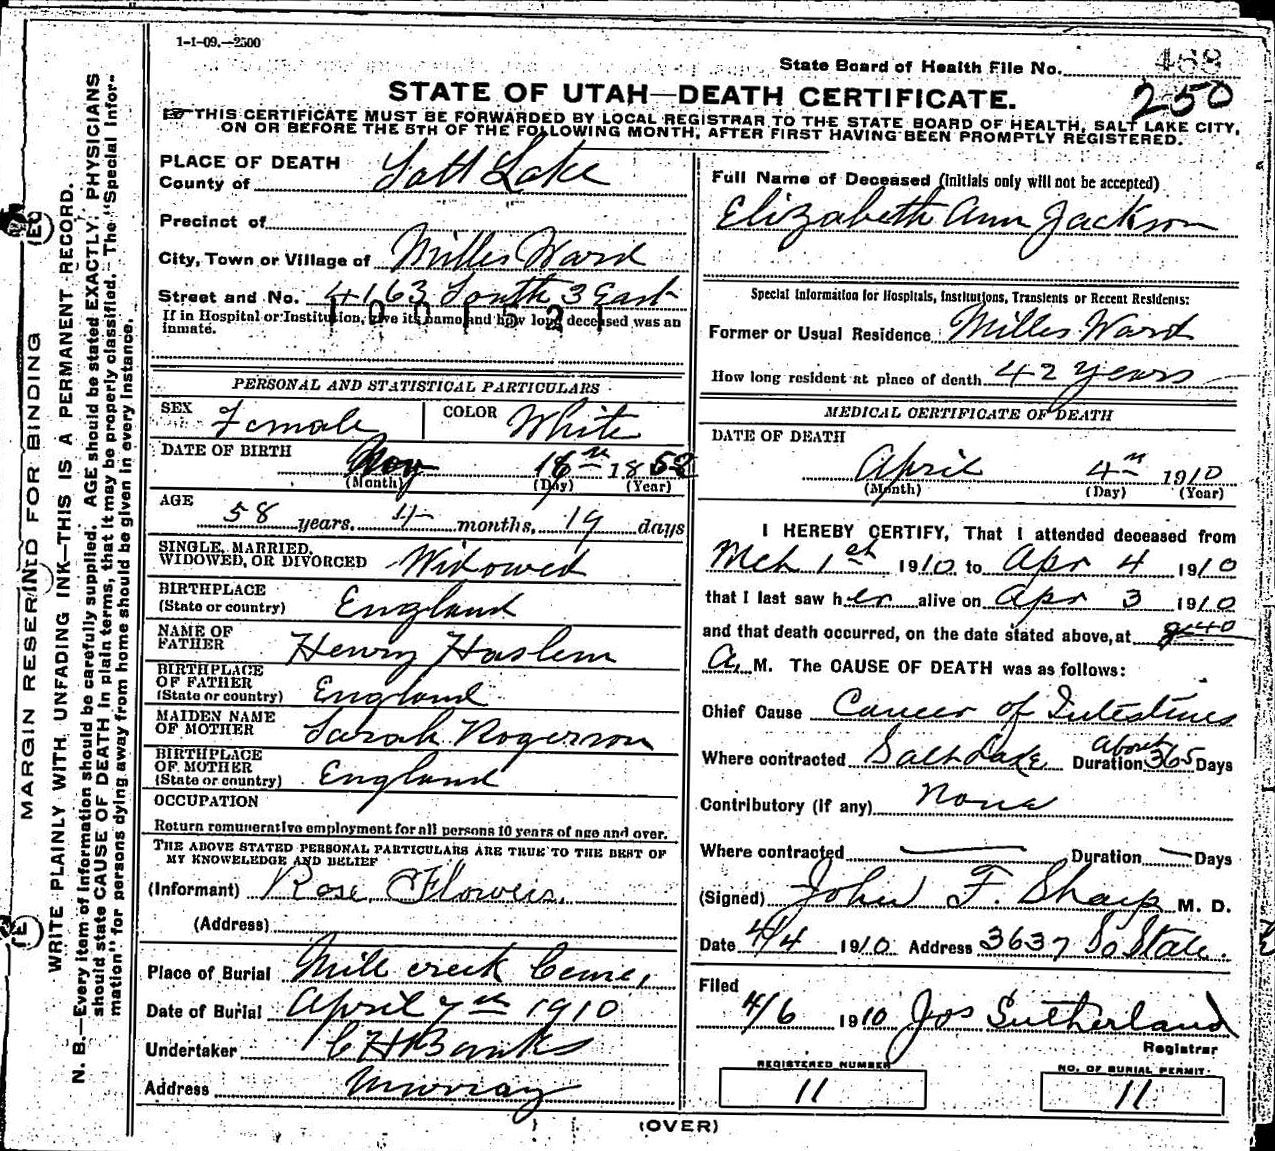 1-1-09.—2500
State Board of Health File No. 468
250
STATE OF UTAH—DEATH CERTIFICATE.
THIS CERTIFICATE MUST BE FORWARDED BY LOCAL REGISTRAR TO THE STATE BOARD OF HEALTH, SALT LAKE CITY,
ON OR BEFORE THE 5TH OF THE FOLLOWING MONTH, AFTER FIRST HAVING BEEN PROMPTLY REGISTERED.
PLACE OF DEATH
County of Salt Lake
Precinct of
City, Town or Village of Milles Ward
Street and No. 4163 South 3 East
If in Hospital or Institution, give its name and how long deceased was an
inmate.
PERSONAL AND STATISTICAL PARTICULARS
SEX Female COLOR White
DATE OF BIRTH Nov 16th 1852
(Month) (Day) (Year)
AGE 58 years, 4 months, 19 days
SINGLE, MARRIED,
WIDOWED, OR DIVORCED Widowed
BIRTHPLACE
(State or country) England
NAME OF
FATHER Henry Haslem
BIRTHPLACE
OF FATHER
(State or country) England
MAIDEN NAME
OF MOTHER Sarah Rogerson
BIRTHPLACE
OF MOTHER
(State or country) England
OCCUPATION
Return remunerative employment for all persons 10 years of age and over.
THE ABOVE STATED PERSONAL PARTICULARS ARE TRUE TO THE BEST OF
MY KNOWLEDGE AND BELIEF
(Informant) Rose Flowers.
(Address)
Place of Burial Mill creek Ceme,
Date of Burial April 7th 1910
Undertaker C H Banks
Address Murray
Full Name of Deceased (Initials only will not be accepted)
Elizabeth Ann Jackson
Special Information for Hospitals, Institutions, Transients or Recent Residents:
Former or Usual Residence Milles Ward
How long resident at place of death 42 years
MEDICAL CERTIFICATE OF DEATH
DATE OF DEATH
April 4th 1910
(Month) (Day) (Year)
I HEREBY CERTIFY, That I attended deceased from
Mch 1st 1910 to Apr 4 1910
that I last saw her alive on Apr 3 1910
and that death occurred, on the date stated above, at 9-40
A. M. The CAUSE OF DEATH was as follows:
Chief Cause Cancer of Intestines
Where contracted Salt Lake Duration about 365 Days
Contributory (if any) None
Where contracted — Duration — Days
(Signed) John F. Sharp M. D.
Date 4/4 1910 Address 3637 So State.
Filed
4/6 1910 Jos Sutherland
Registrar
REGISTERED NUMBER
11
NO. OF BURIAL PERMIT
11
(OVER)
MARGIN RESERVED FOR BINDING
WRITE PLAINLY WITH UNFADING INK—THIS IS A PERMANENT RECORD.
N. B.—Every item of information should be carefully supplied. AGE should be stated EXACTLY. PHYSICIANS
should state CAUSE OF DEATH in plain terms, that it may be properly classified. The "Special Infor-
mation" for persons dying away from home should be given in every instance.